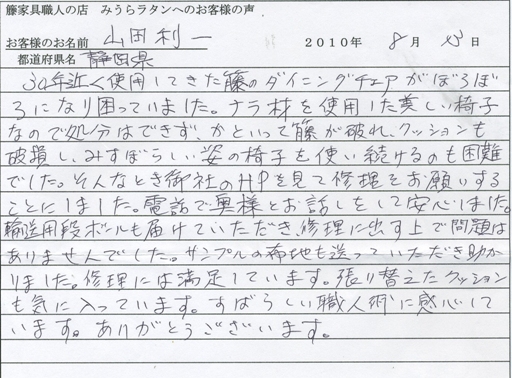 籐家具職人の店 みうらラタンへのお客様の声
お客様のお名前 山田利一 2010年 8月 15日
都道府県名 静岡県
30年近く使用してきた籐のダイニングチェアがぼろぼ
ろになり困っていました。ナラ材を使用した美しい椅子
なので処分はできず、かといって籐が破れ、クッションも
破損し、みすぼらしい姿の椅子を使い続けるのも困難
でした。そんなとき御社のHPを見て修理をお願いする
ことにしました。電話で奥様とお話しをして安心しました。
輸送用段ボールも届けていただき、修理に出す上で問題は
ありませんでした。サンプルの布地も送っていただき助か
りました。修理には満足しています。張り替えたクッション
も気に入っています。すばらしい職人術に感心して
います。ありがとうございます。